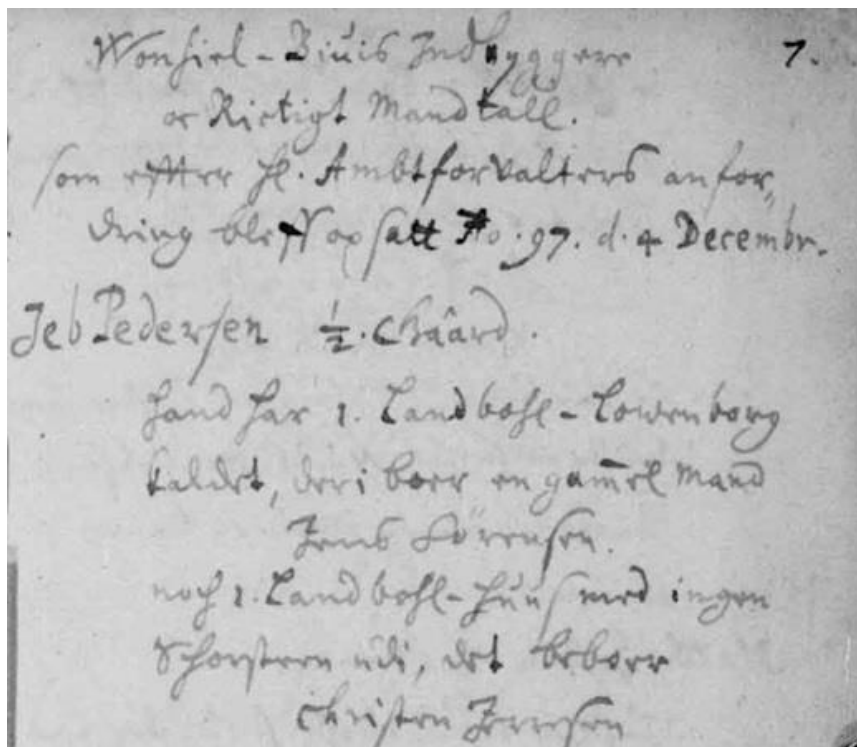 Wonsiel-Biuis Indbyggere 7.
oc Rictigt Mandtall.
som effter Hl. Ambtforvalters anfor„
dring bleff opsatt Ao. 97. d. 4 Decembr.
Jeb Pedersen ½. Gåård.
Hand har 1. Landbohl-Lowenborg
kaldet, deri boer en gam̄el Mand
Jens Sörensen.
noch 1. Landbohl-Huus med ingen
Schorsteen udi, det beboer
Christen Jenssen